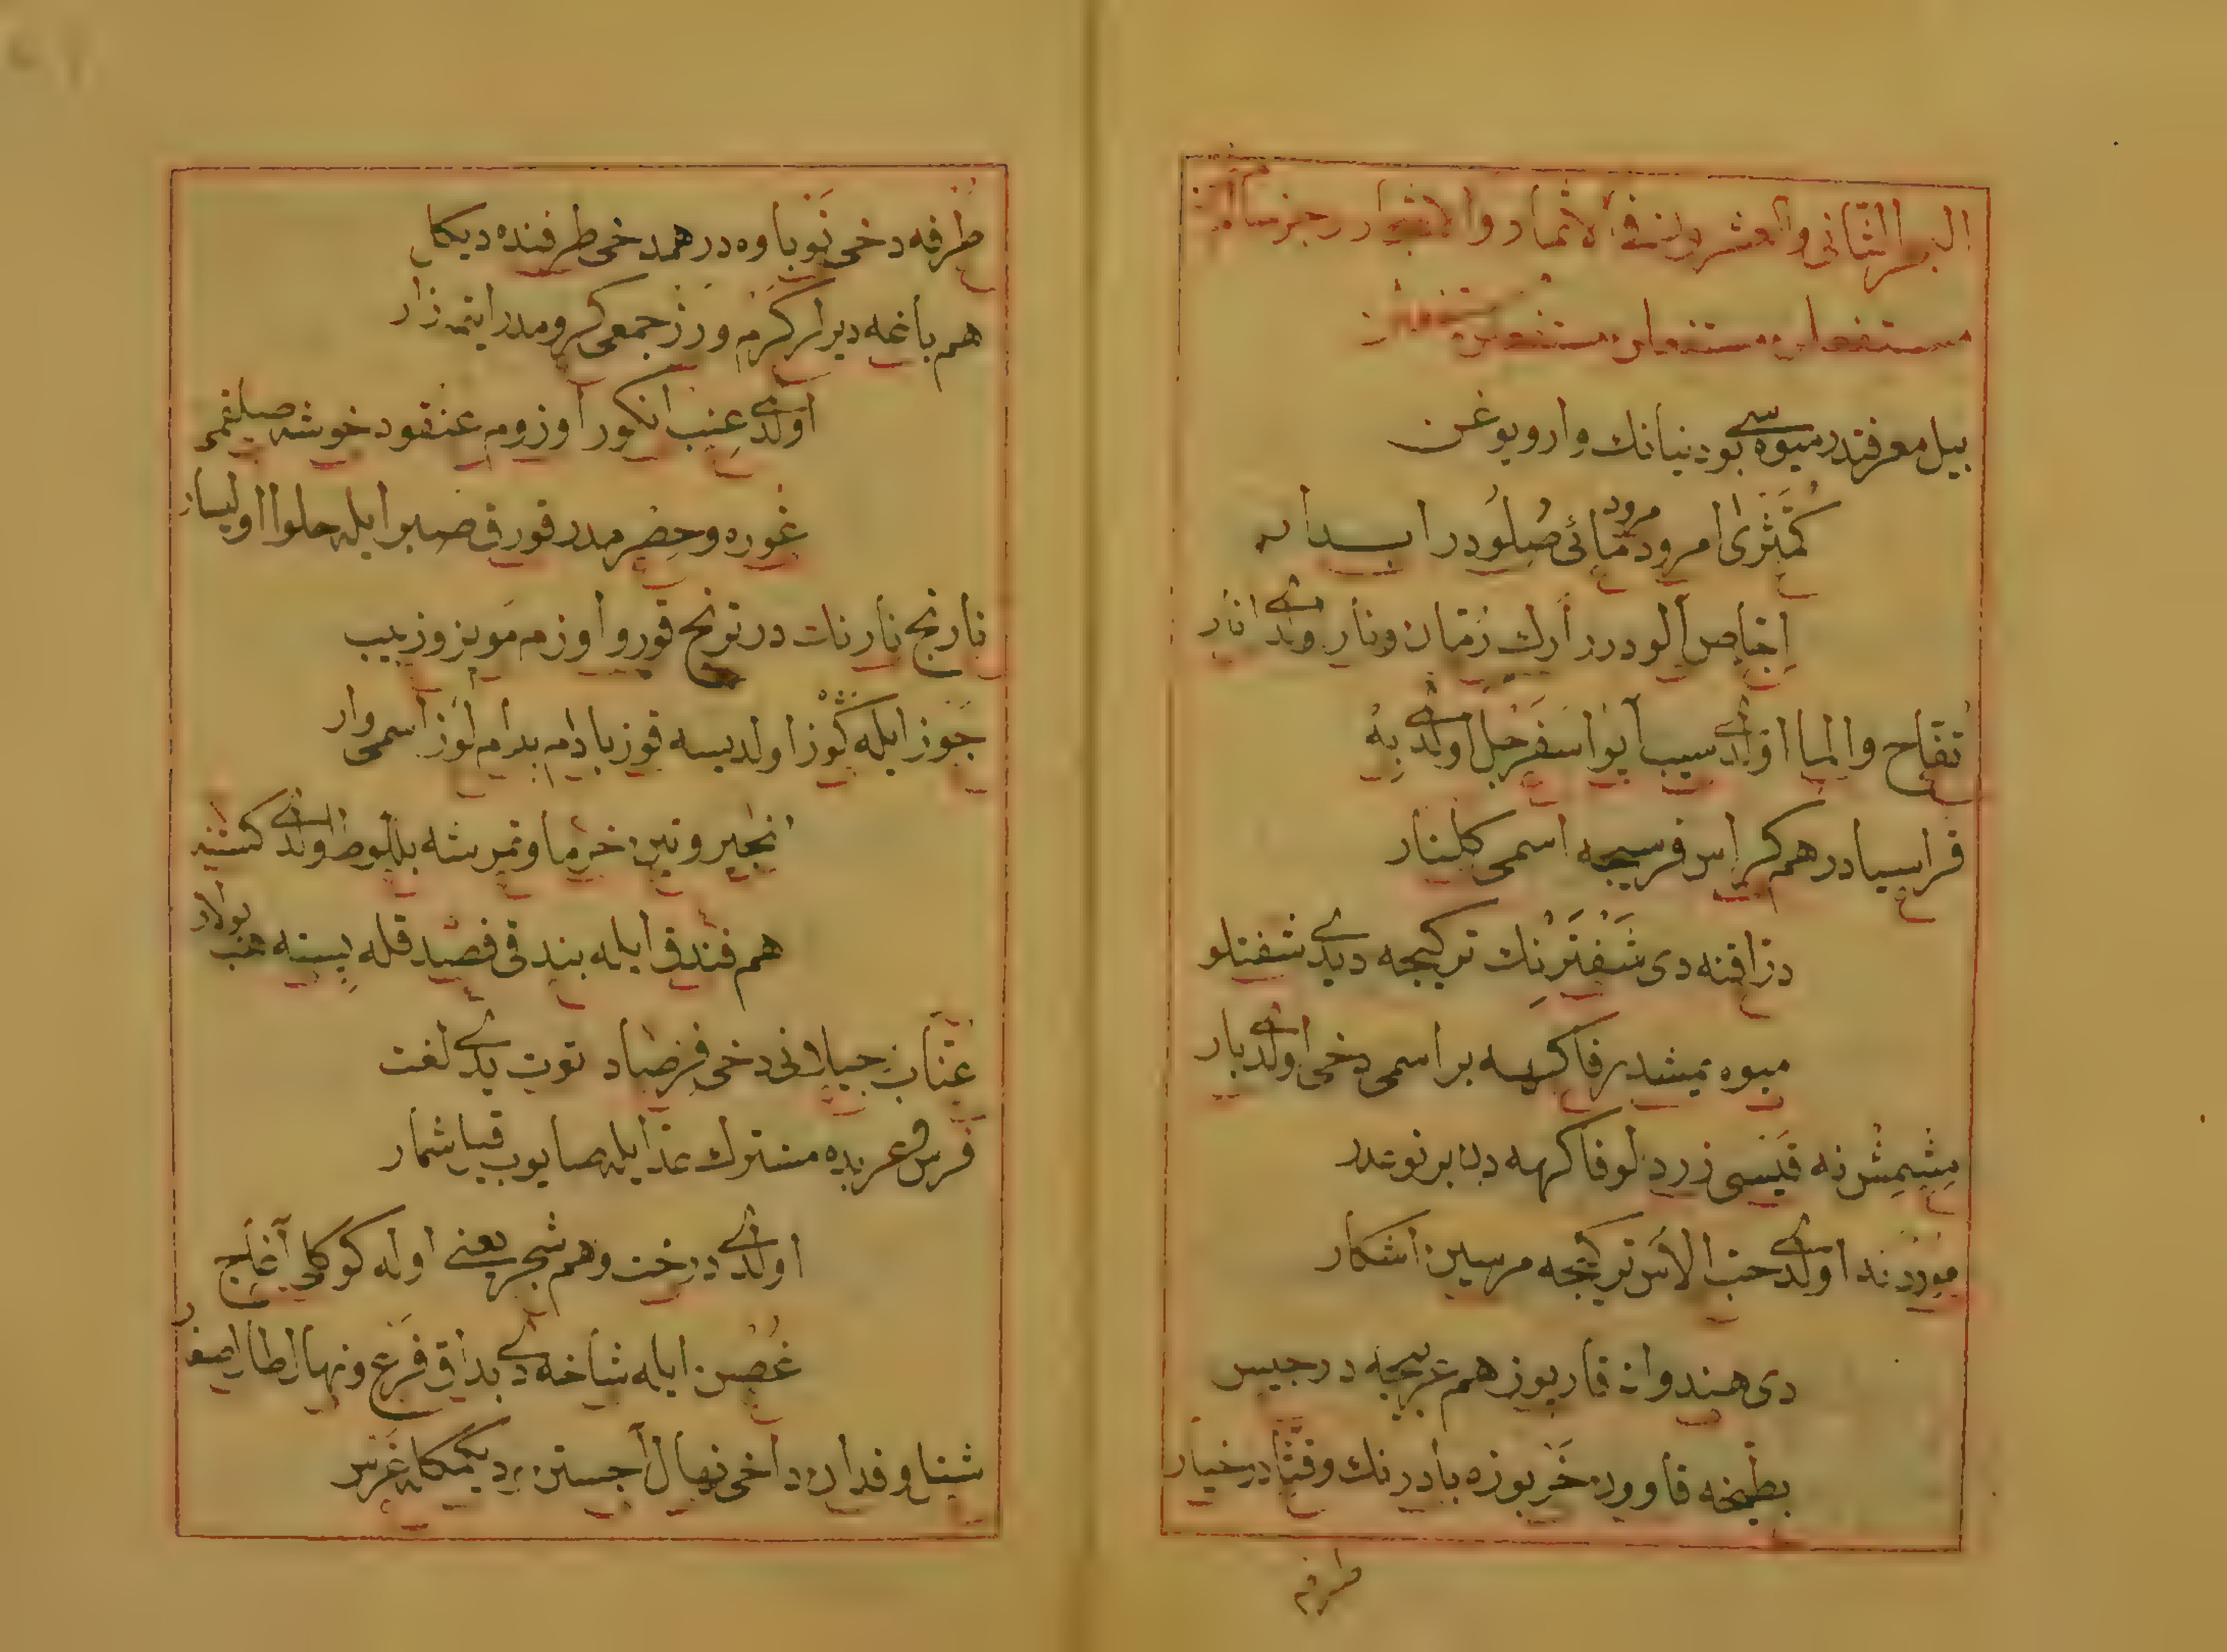 البحر الثانى والعشرون فى الاثمار والاشجار رجز سالم
مستفعلن مستفعلن مستفعلن مستفعلن
بيل معرفتدر ميوه سى بو دنيانك وار ويوغن
كُمَّثْرٰى امرود مرود مائى صُلُودر
اِجّاص آلودرر ارك رُمّان ونار ولدى انار
تفّاح والما اولدى سيب آيوا سَفَرْجل اولدى بِهْ
قراسيا در هم كراس فرسيجه اسمى كلنار
دراقنه دى شَفْتَرَنِك تركيجه ديدى شفتلو
ميوه يمشدر فاكهه بر اسمى دخى اولدى بار
مِشْمِش نه قيسى زردلو فاكهه دن بر نوعدر
مورد اولدى حبّ الآس تركيجه مرسين آشكار
دى هندوانه قارپوز هم عربيجه در
بطيخه قاوون خَربوزه بادرنك وقثّا در خيار
طرفه
طُرفه دخى نَوباوه در همدخى طرفنده ديكل
هم باغه ديرلر كَرْم ورَز جمعى كروم در
اولدى عِنب انكور اوزوم عنقود خوشه صيلقمر
غوره وحِصْرِمدر قورق صبر ايله حلوا اول
نارنج نارنك در ترنج قورو اوزم مَويز وزبيب
جَوز ايله كَوْز اولديسه قوز بادام بدام لَوْز اسمى وار
انجير وتين خرما وتمر شه بلّوط اولدى كستنه
هم فندق ايله بندق فصد قله پسته حب بولار
عنّاب جيلانى دخى فرصاد توت يدى لغت
فرس عربده مشترك عدّ ايله صايوب قيل شمار
اولدى درخت وهم شجر يعنى اوله كوكلى آغاج
غُصن ايله شاخه دى بداق فَرْع ونهال
شتل وفدان داخى نهال جستن ديكمكله غَرْس